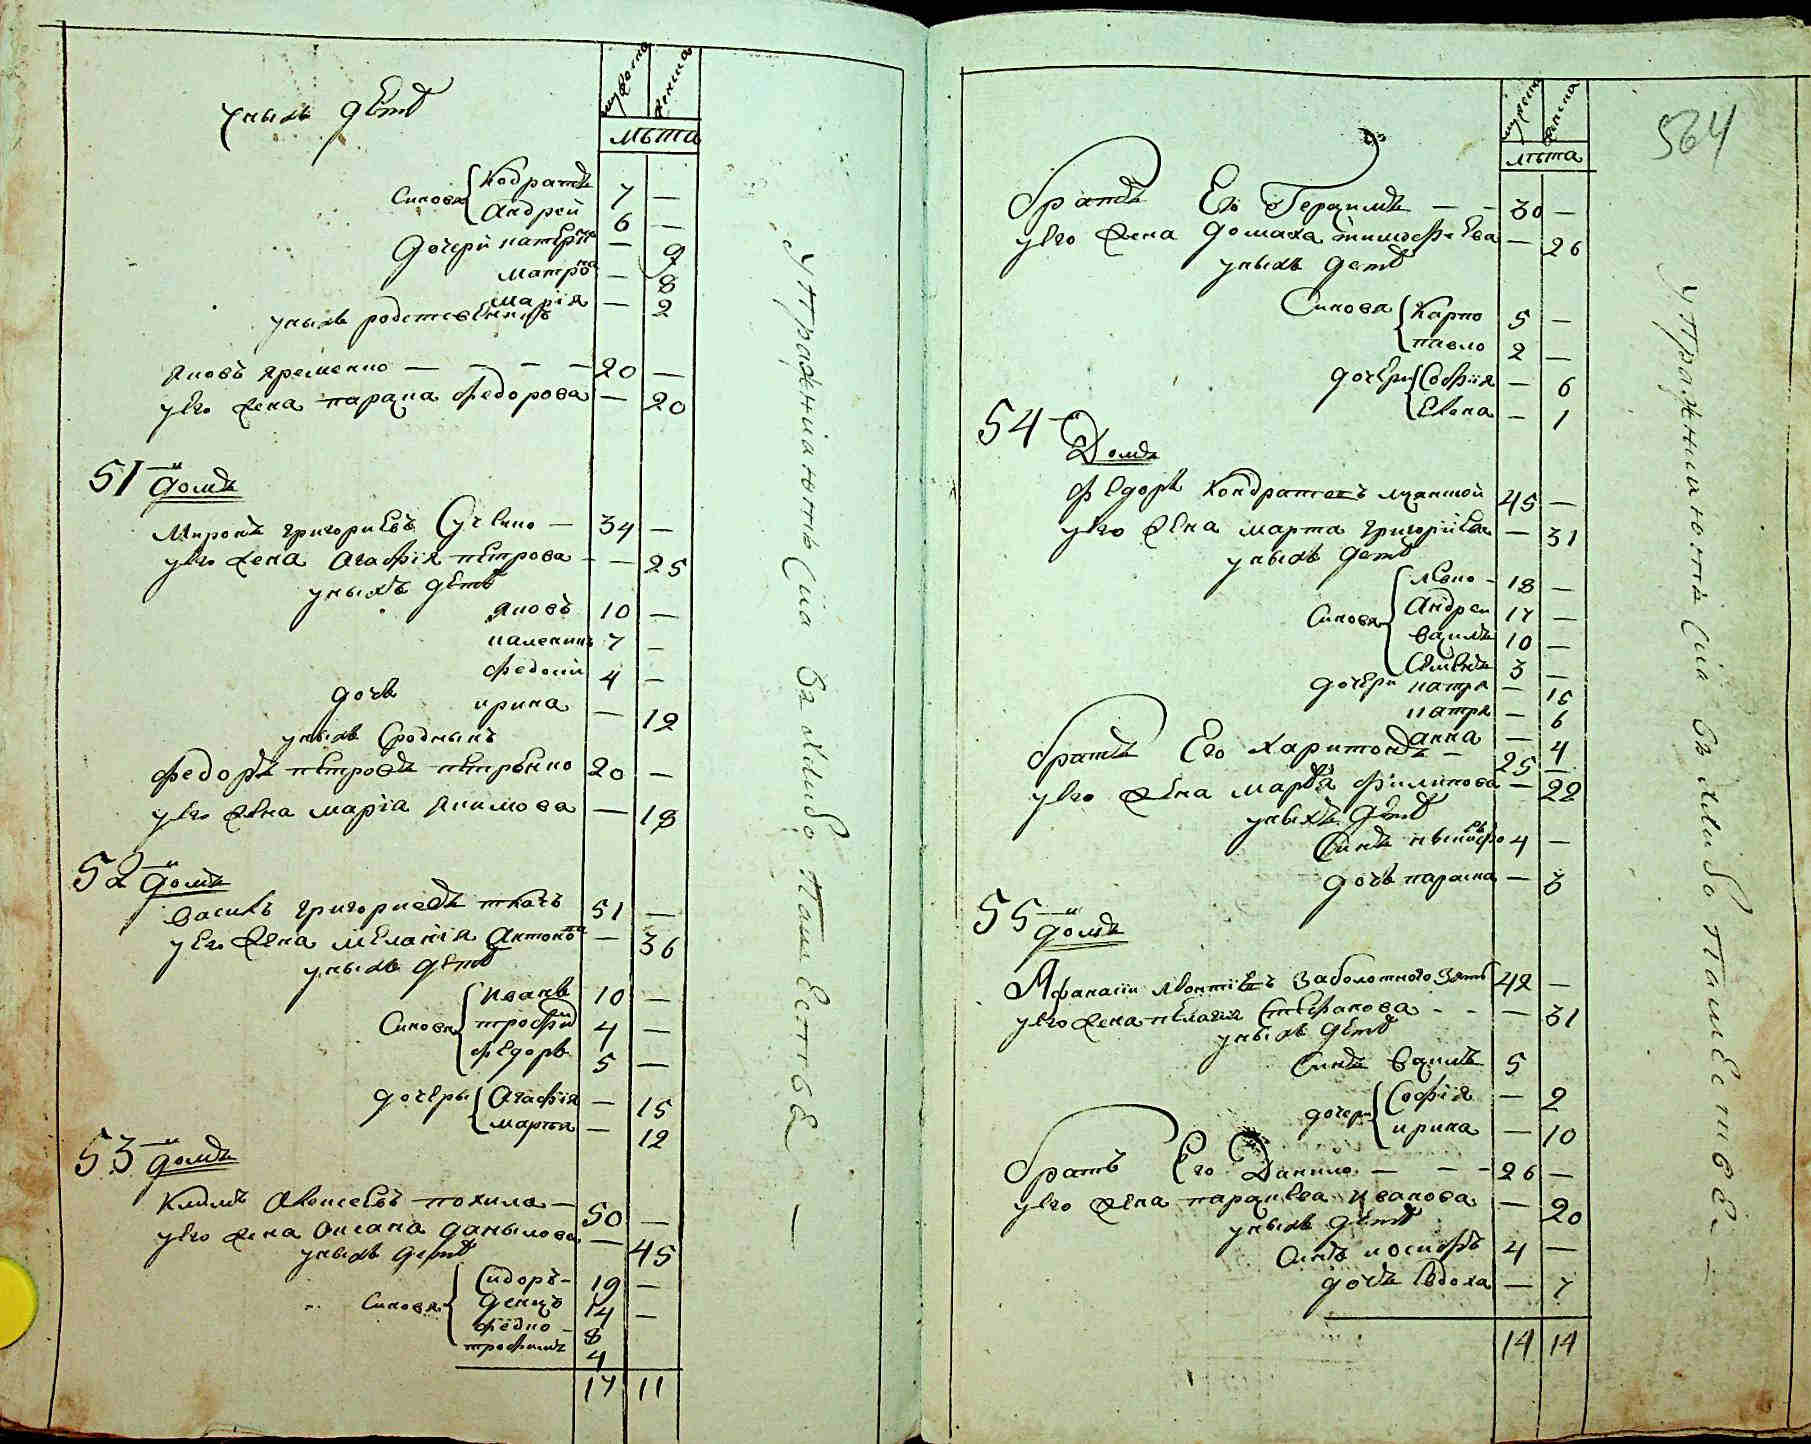 мужеска женска
лѣта
у нихъ дети
Синовя Кодратъ 7 —
Андрей 6 —
дочери катерина — 9
матрона — 8
марія — 2
у нихъ родственникъ
яковъ яременко — 20 —
у его жена параска федорова — 20
51 й домъ
Миронъ григориевъ — 34 —
у его жена Агафія петрова — 25
у нихъ дети
яковъ 10 —
7 —
федосий 4 —
дочь ирина — 12
у нихъ Сродникъ
федоръ петровъ петренко 20 —
у его жена марія якимова — 18
52 й домъ
василь григориевъ ткачъ 51 —
у его жена меланія антонова — 36
у нихъ дети
Синовя иванъ 10 —
трофим 4 —
федоръ 5 —
дочеры Агафія — 15
марта — 12
53 й домъ
Климъ Алексеевъ похила — 50 —
у его жена оксана данылова — 45
у нихъ дети
Синовя Сидоръ — 19 —
денисъ 14 —
федко — 8
трофимъ 4
17 11
У Пражниатъ Сиа Въ Либо Паместье —
564
мужеска женска
лѣта
братъ Его Герасимъ — — 30 —
у его жена домаха тимофеева — 26
у нихъ дети
Синова Карпо 5 —
павло 2 —
дочери Софія — 6
Елена — 1
54 й Домъ
федоръ кондратевъ 45 —
у его жена марта григоріева — 31
у нихъ дети
Синовя леско — 18 —
Андреи 17 —
василь 10 —
Семенъ 3 —
дочери катря — 16
катря — 6
анна — 4
братъ Его харитонъ — 25 —
у его жена марфа филипова — 22
у нихъ дети
Синъ никифоръ 4 —
дочь параска — 3
55 й домъ
Афанасіи леонтіевъ Заболотного Зять 42 —
у его жена пелагия Стефанова — 31
у нихъ дети
Синъ василь 5
дочери Софія — 2
ирина — 10
братъ Его Данило — — 26 —
у его жена параскева иванова — 20
у нихъ дети
Синъ иосифъ 4 —
дочь Евдоха — 7
14 14
У Пражниатъ Сиа Въ Либо Паместье —